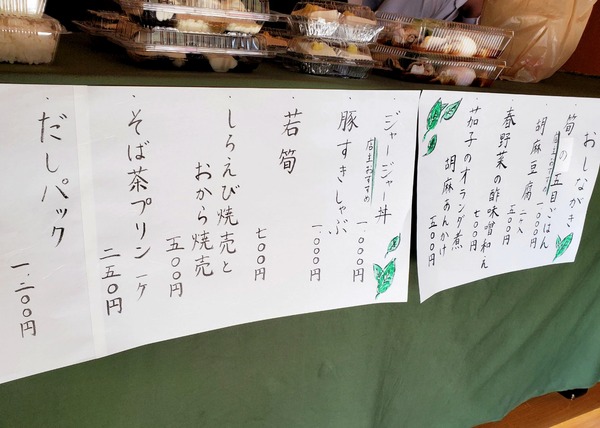 おしながき
筍の五目ごはん
胡麻豆腐
一〇〇〇円
春野菜の酢味噌和え
五〇〇円
茄子のオランダ煮
七〇〇円
胡麻あんかけ
五〇〇円
ジャージャー丼
店主おすすめ
一、〇〇〇円
豚すきしゃぶ
一、〇〇〇円
若筍
七〇〇円
しらえび焼売と
おから焼売
五〇〇円
そば茶プリン 一ヶ
二五〇円
だしパック
一、二〇〇円